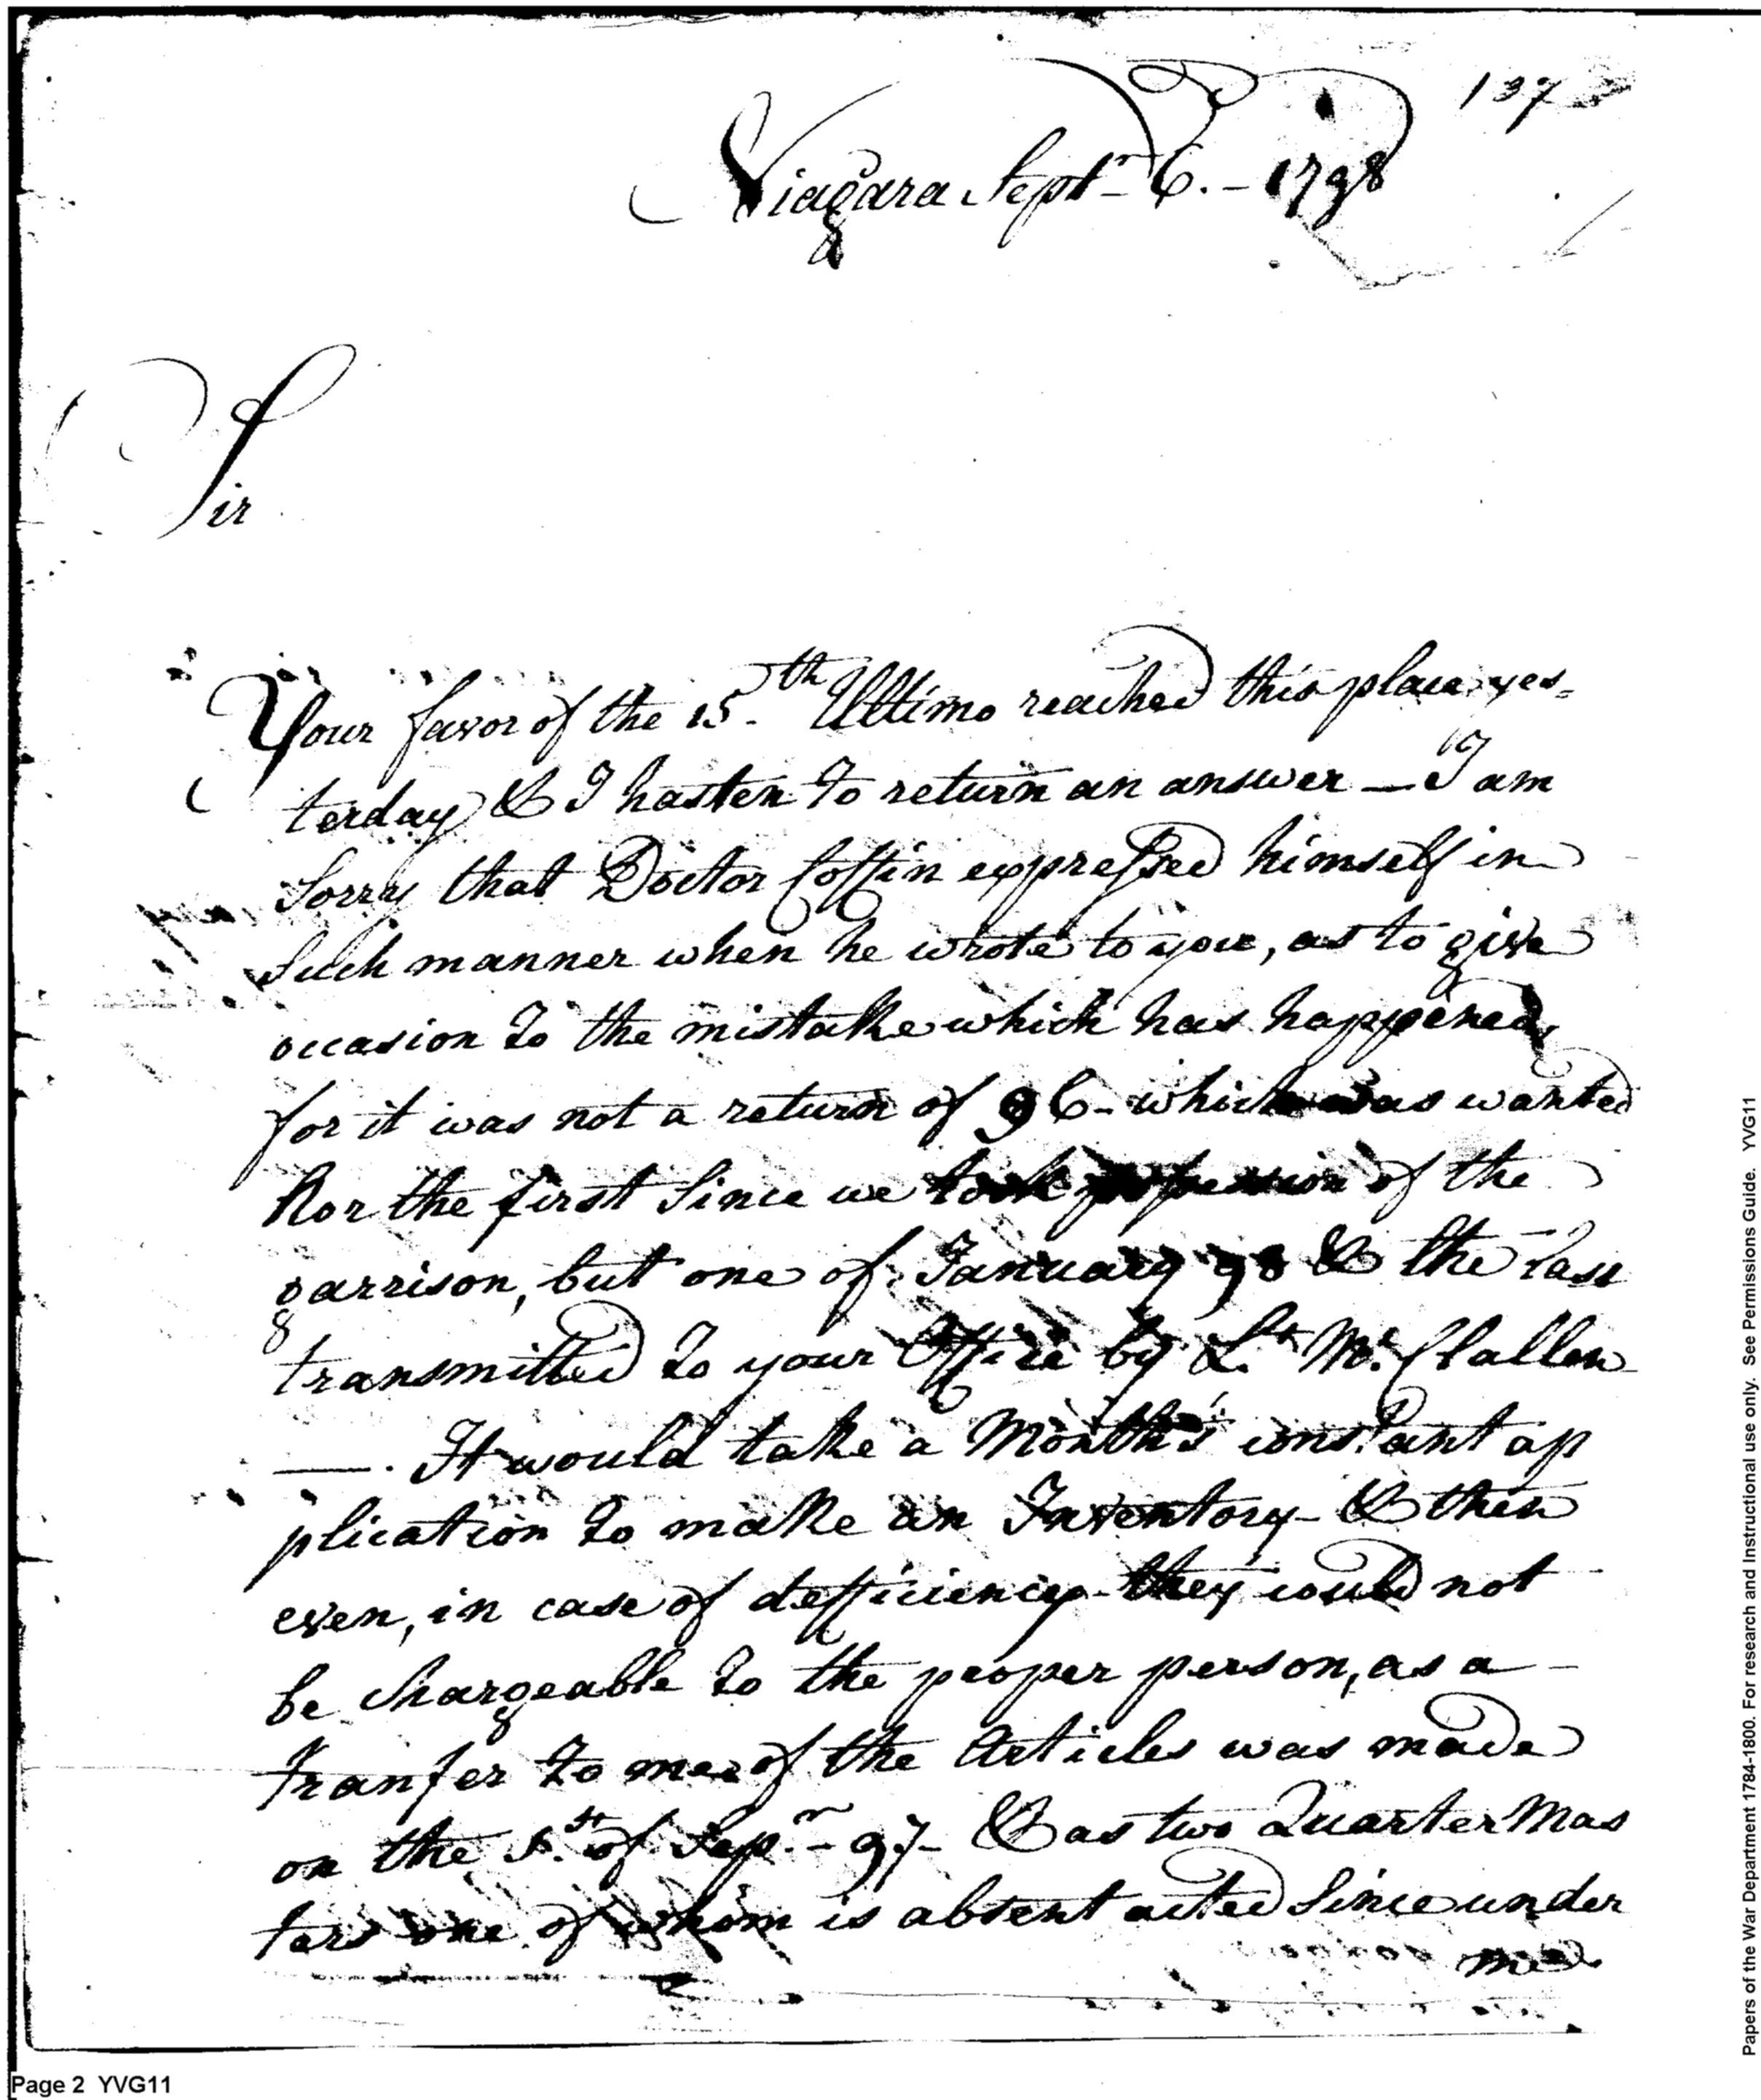 137
Niagara Septr 6. - 1798
Sir
Your favor of the 15th Ultimo reached this place yes-
terday & I hasten to return an answer — I am
Sorry that Doctor Coffin expressed himself in
Such manner when he wrote to you, as to give
occasion to the mistake which has happened,
for it was not a return of 96 - which was wanted
Nor the first Since we took possession of the
garrison, but one of January 98 & the last
transmitted to your Office by Lt. Mc. Clallen
—. It would take a Month's constant ap
plication to make an Inventory - & then
even, in case of defficiency - they could not
be Chargeable to the proper person, as a -
Tranfer to me of the Articles was made
on the 1st. of Sepr. - 97 - & as two Quarter Mas
ters one of whom is absent acted Since under
me
Page 2 YVG11
Papers of the War Department 1784-1800. For research and Instructional use only. See Permissions Guide. YVG11